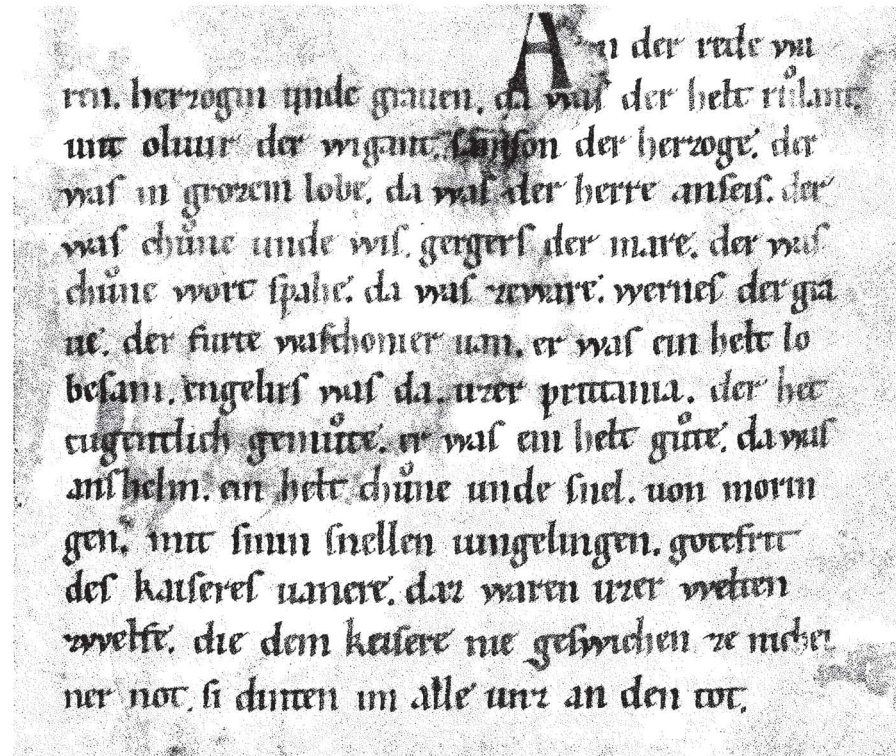 An der rede wa
ren. herzogin unde grauen. da was der helt růlant.
unt oliuir der wigant. samson der herzoge. der
was in grozem lobe. da was der herre anseis. der
was chůne unde wis. gergers der mare. der was
chůne wort spahe. da was zeware. wernes der gra
ue. der furte waschonier uan. er was ein helt lo
besam. engelirs was da. uzer prittania. der het
tugentlich gemůte. er was ein helt gůte. da was
anshelm. ein helt chůne unde snel. uon morin
gen. mit sinin snellen iungelingen. gotefrit
des kaiseres uanere. daz waren uzer welten
zwelfe. die dem keisere nie geswichen ze nichei
ner not. si dinten im alle unz an den tot.